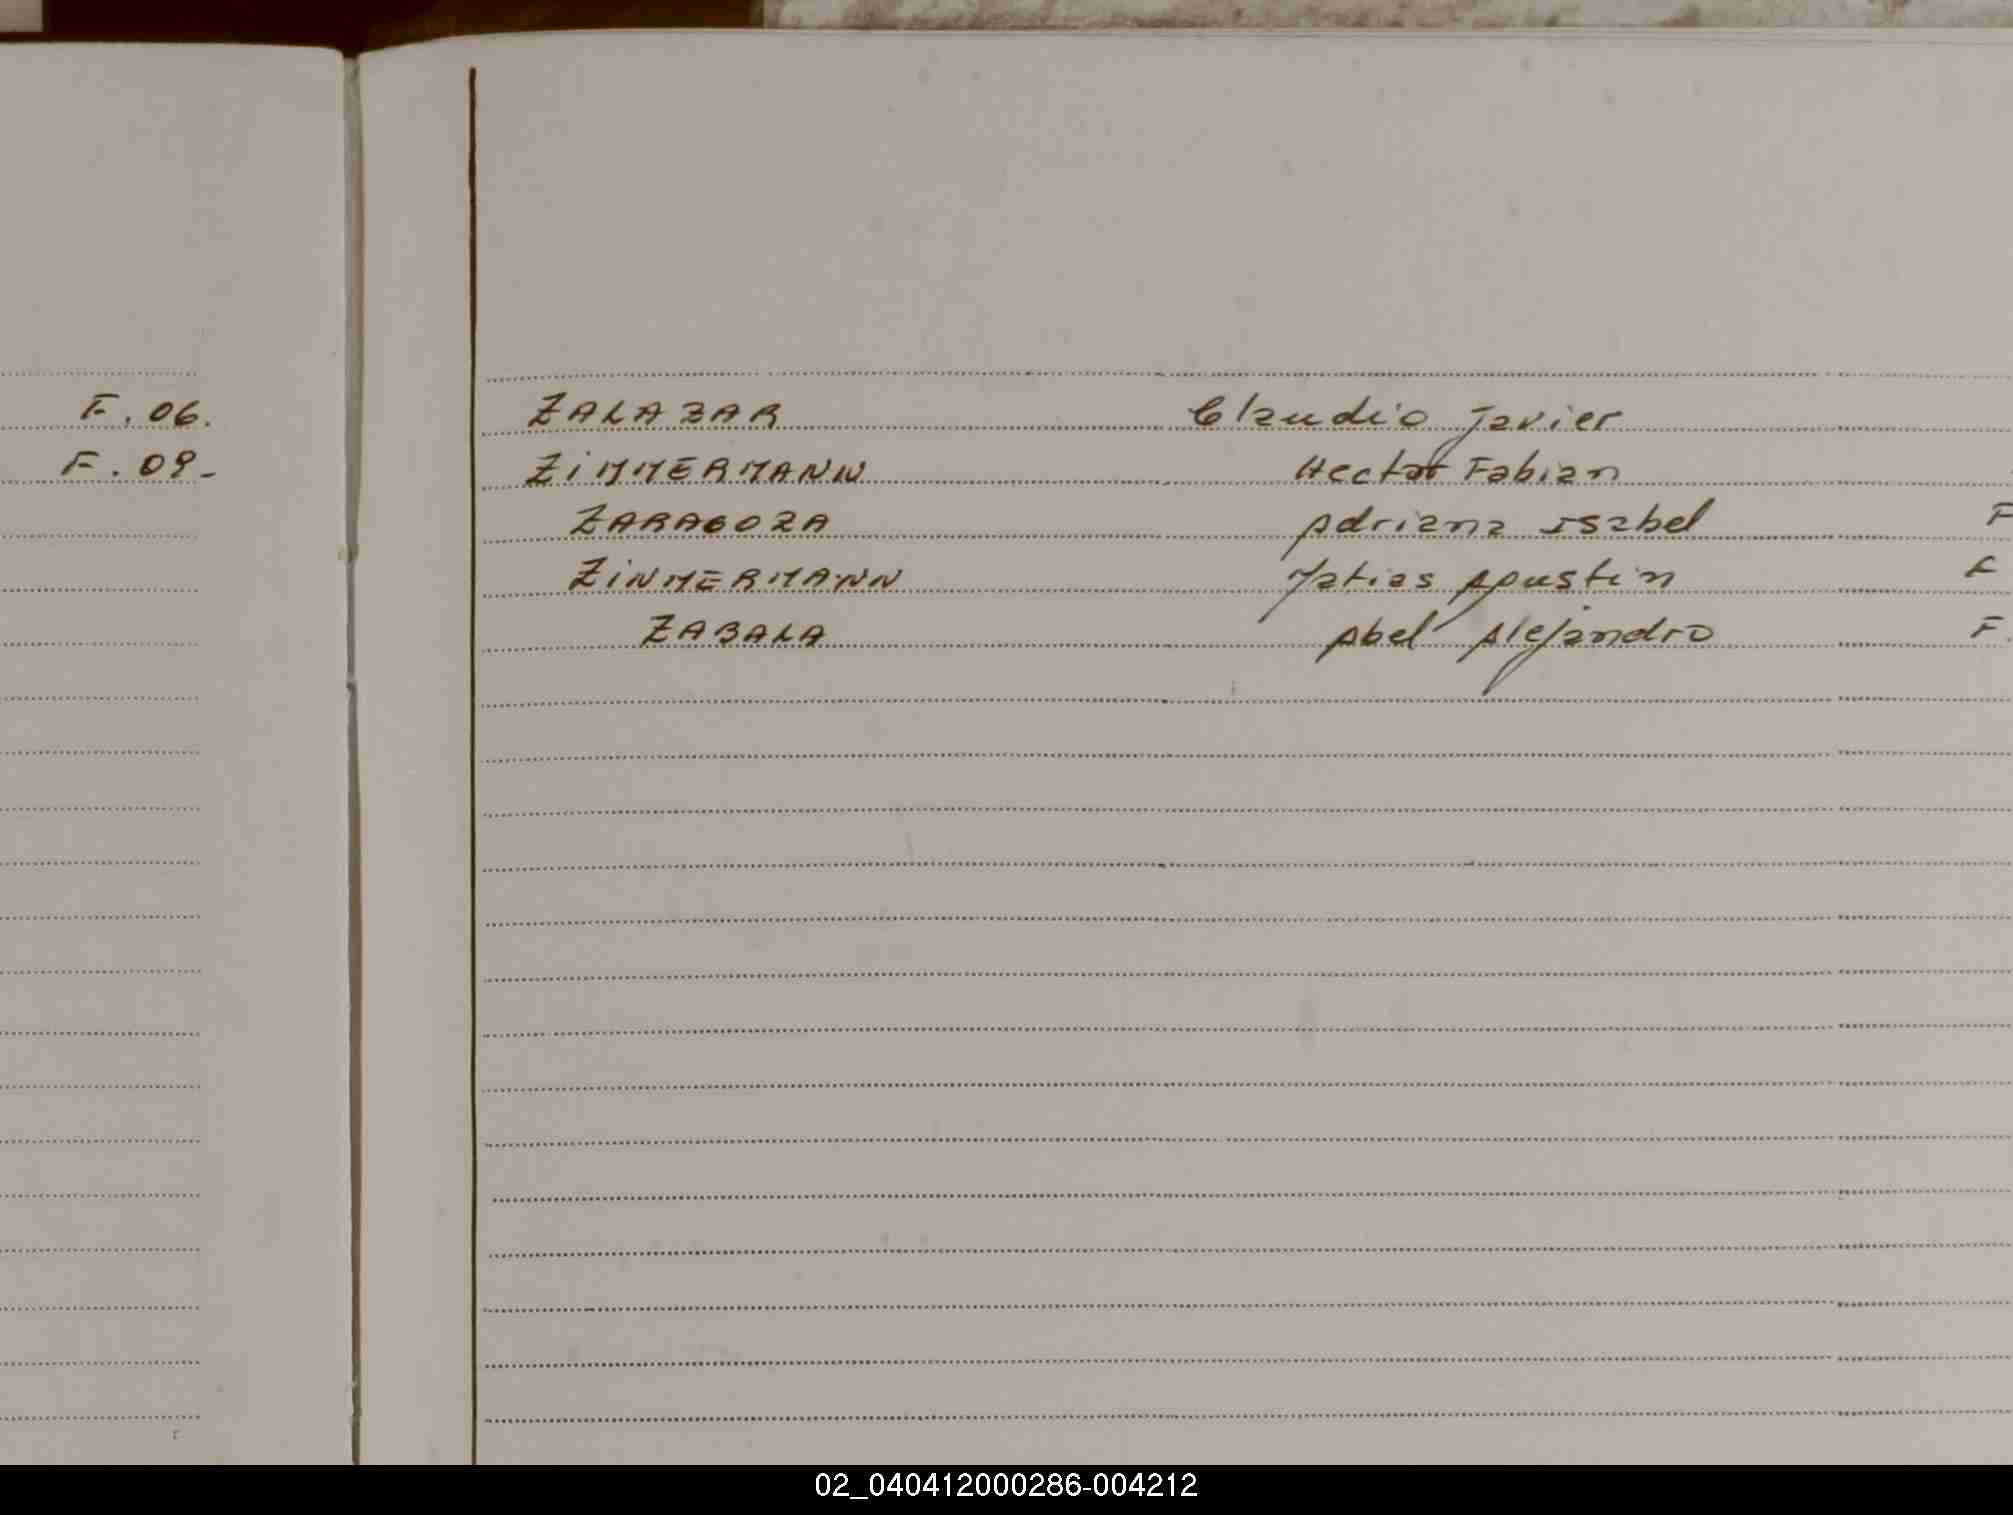 F. 06.
F. 09-
ZALAZAR Claudio Javier
ZiMMERMANN Hector Fabian
ZARAGOZA Adriana Isabel F
ZiNMERMANN Matias Agustin F
ZABALA Abel Alejandro F.
02_040412000286-004212